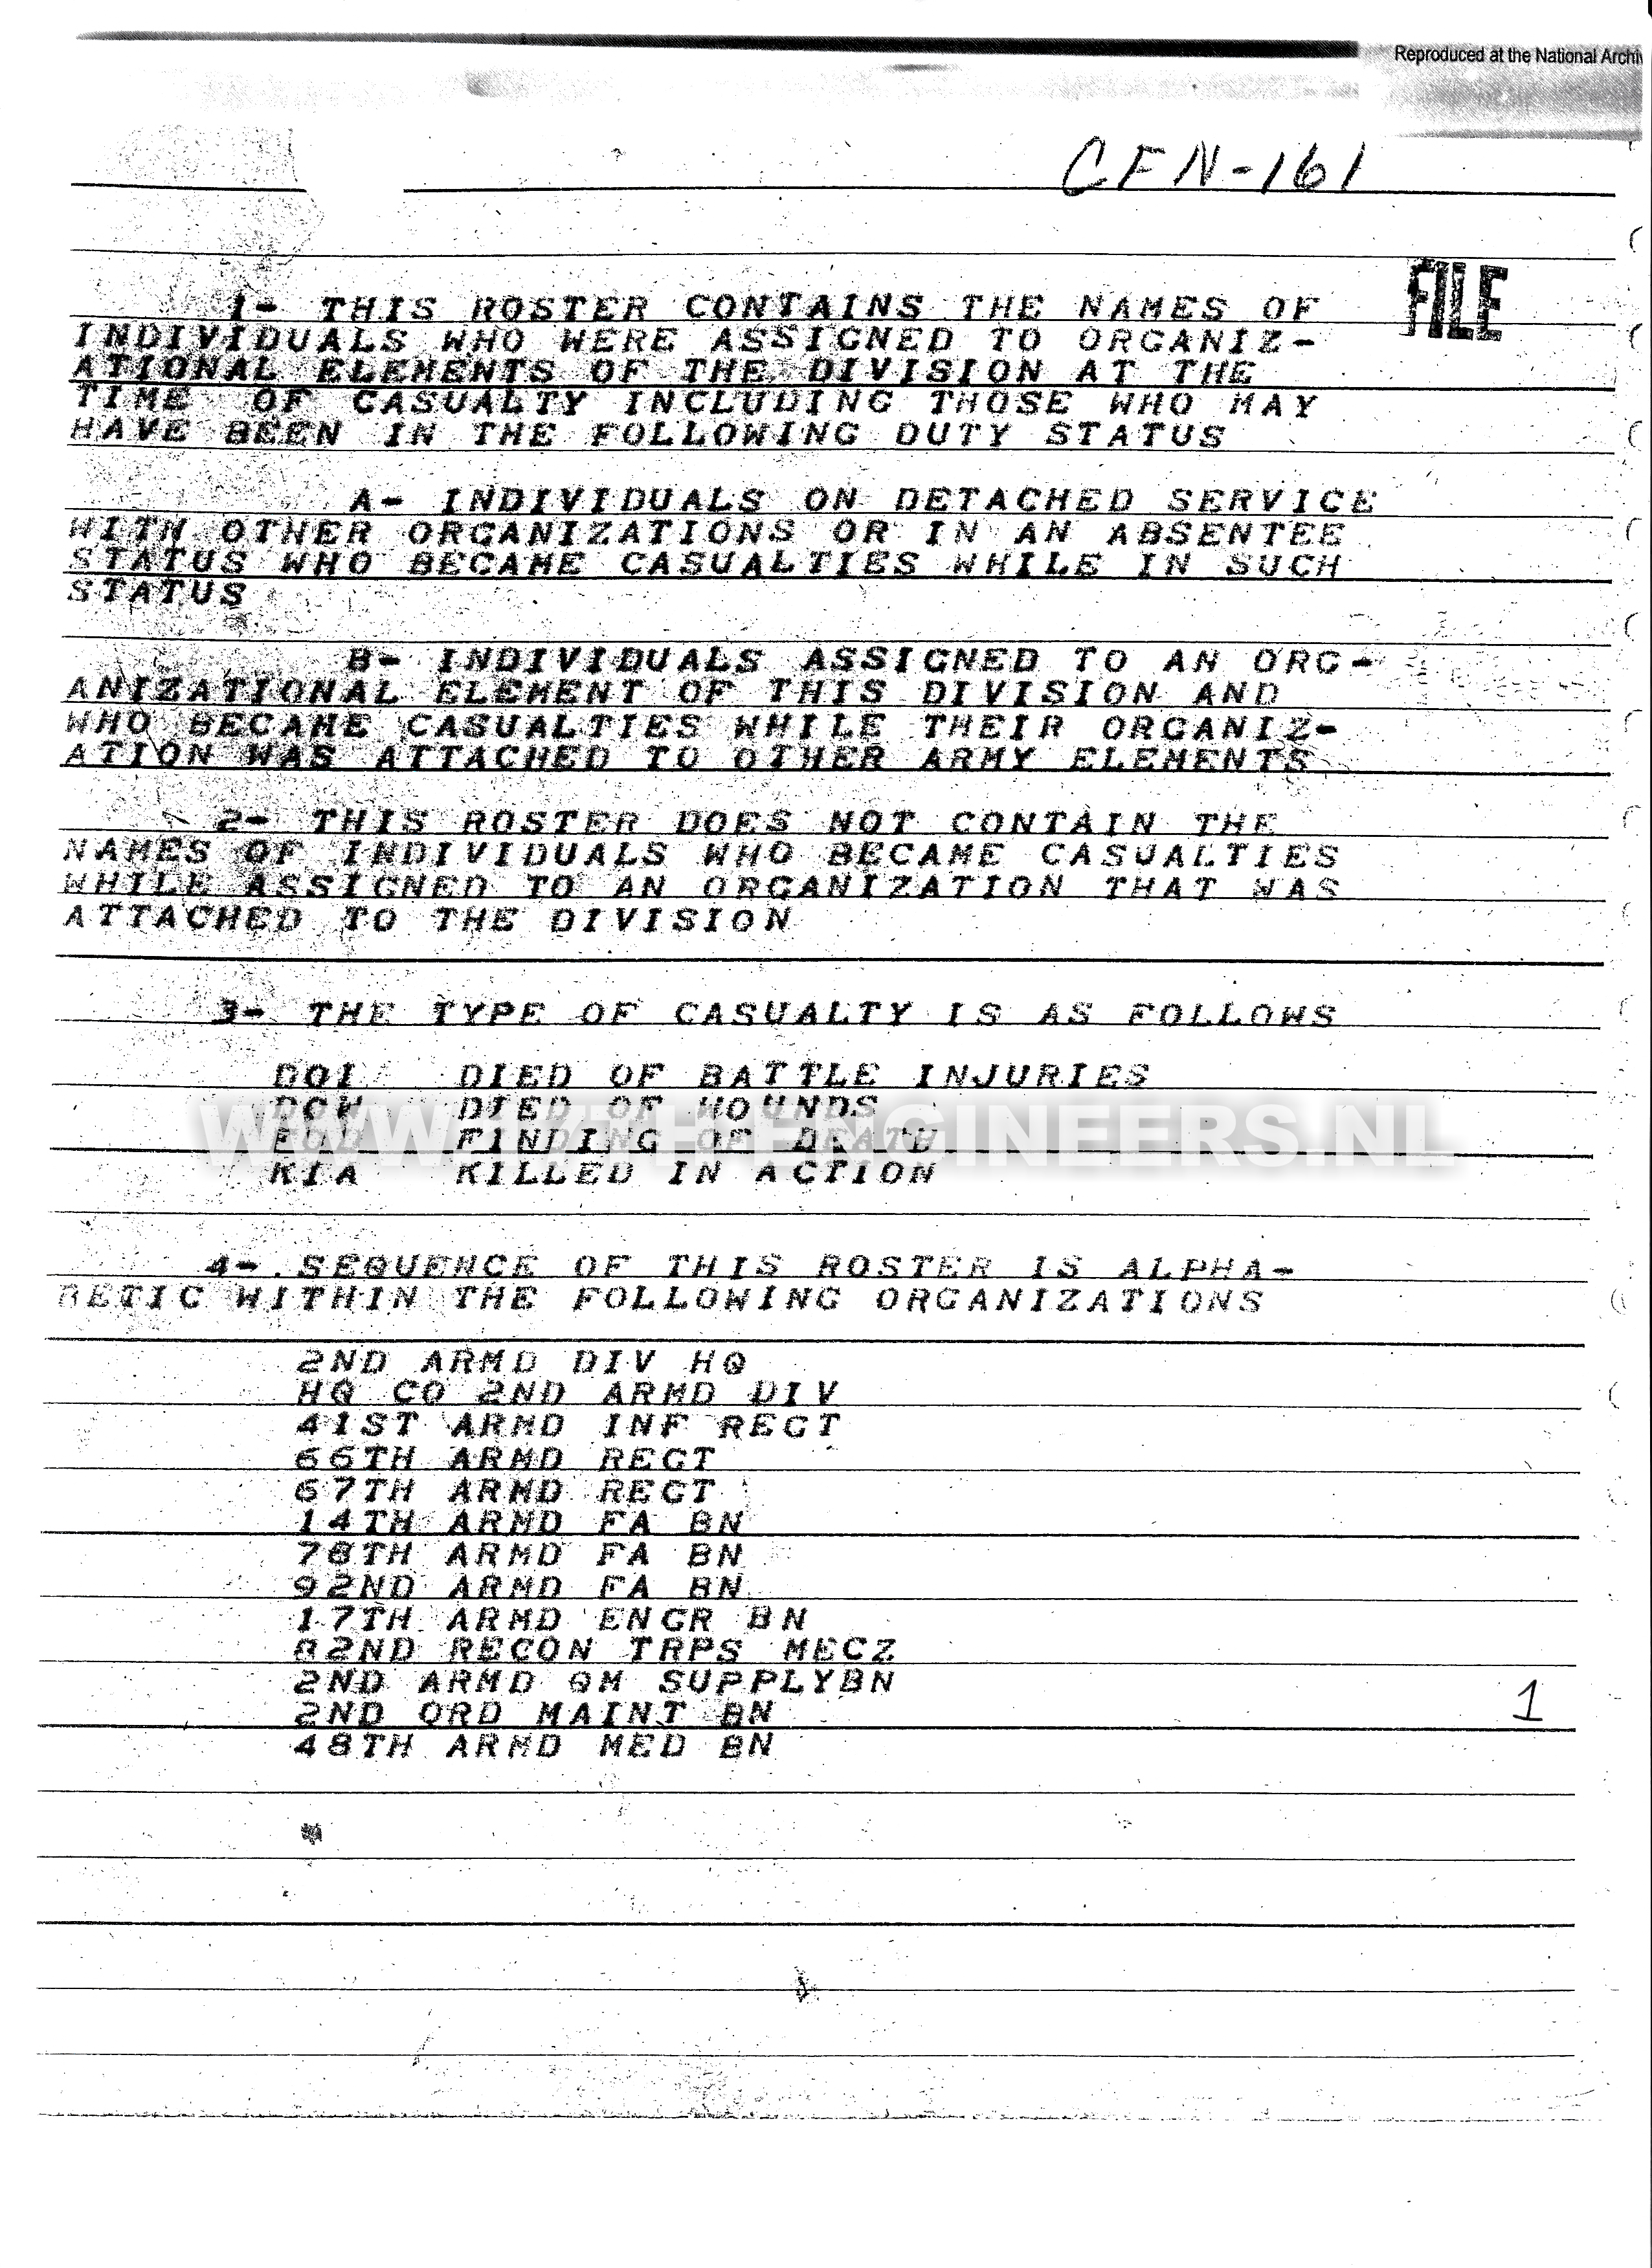 Reproduced at the National Archiv
CFN-161
FILE
1- THIS ROSTER CONTAINS THE NAMES OF
INDIVIDUALS WHO WERE ASSIGNED TO ORGANIZ-
ATIONAL ELEMENTS OF THE DIVISION AT THE
TIME OF CASUALTY INCLUDING THOSE WHO MAY
HAVE BEEN IN THE FOLLOWING DUTY STATUS
A- INDIVIDUALS ON DETACHED SERVICE
WITH OTHER ORGANIZATIONS OR IN AN ABSENTEE
STATUS WHO BECAME CASUALTIES WHILE IN SUCH
STATUS
B- INDIVIDUALS ASSIGNED TO AN ORG-
ANIZATIONAL ELEMENT OF THIS DIVISION AND
WHO BECAME CASUALTIES WHILE THEIR ORGANIZ-
ATION WAS ATTACHED TO OTHER ARMY ELEMENTS
2- THIS ROSTER DOES NOT CONTAIN THE
NAMES OF INDIVIDUALS WHO BECAME CASUALTIES
WHILE ASSIGNED TO AN ORGANIZATION THAT WAS
ATTACHED TO THE DIVISION
3- THE TYPE OF CASUALTY IS AS FOLLOWS
DOI DIED OF BATTLE INJURIES
DOW DIED OF WOUNDS
FOD FINDING OF DEATH
WWW.17THENGINEERS.NL
KIA KILLED IN ACTION
4- SEQUENCE OF THIS ROSTER IS ALPHA-
BETIC WITHIN THE FOLLOWING ORGANIZATIONS
2ND ARMD DIV HQ
HQ CO 2ND ARMD DIV
41ST ARMD INF REGT
66TH ARMD REGT
67TH ARMD REGT
14TH ARMD FA BN
78TH ARMD FA BN
92ND ARMD FA BN
17TH ARMD ENGR BN
82ND RECON TRPS MECZ
2ND ARMD QM SUPPLYBN
2ND ORD MAINT BN
48TH ARMD MED BN
1